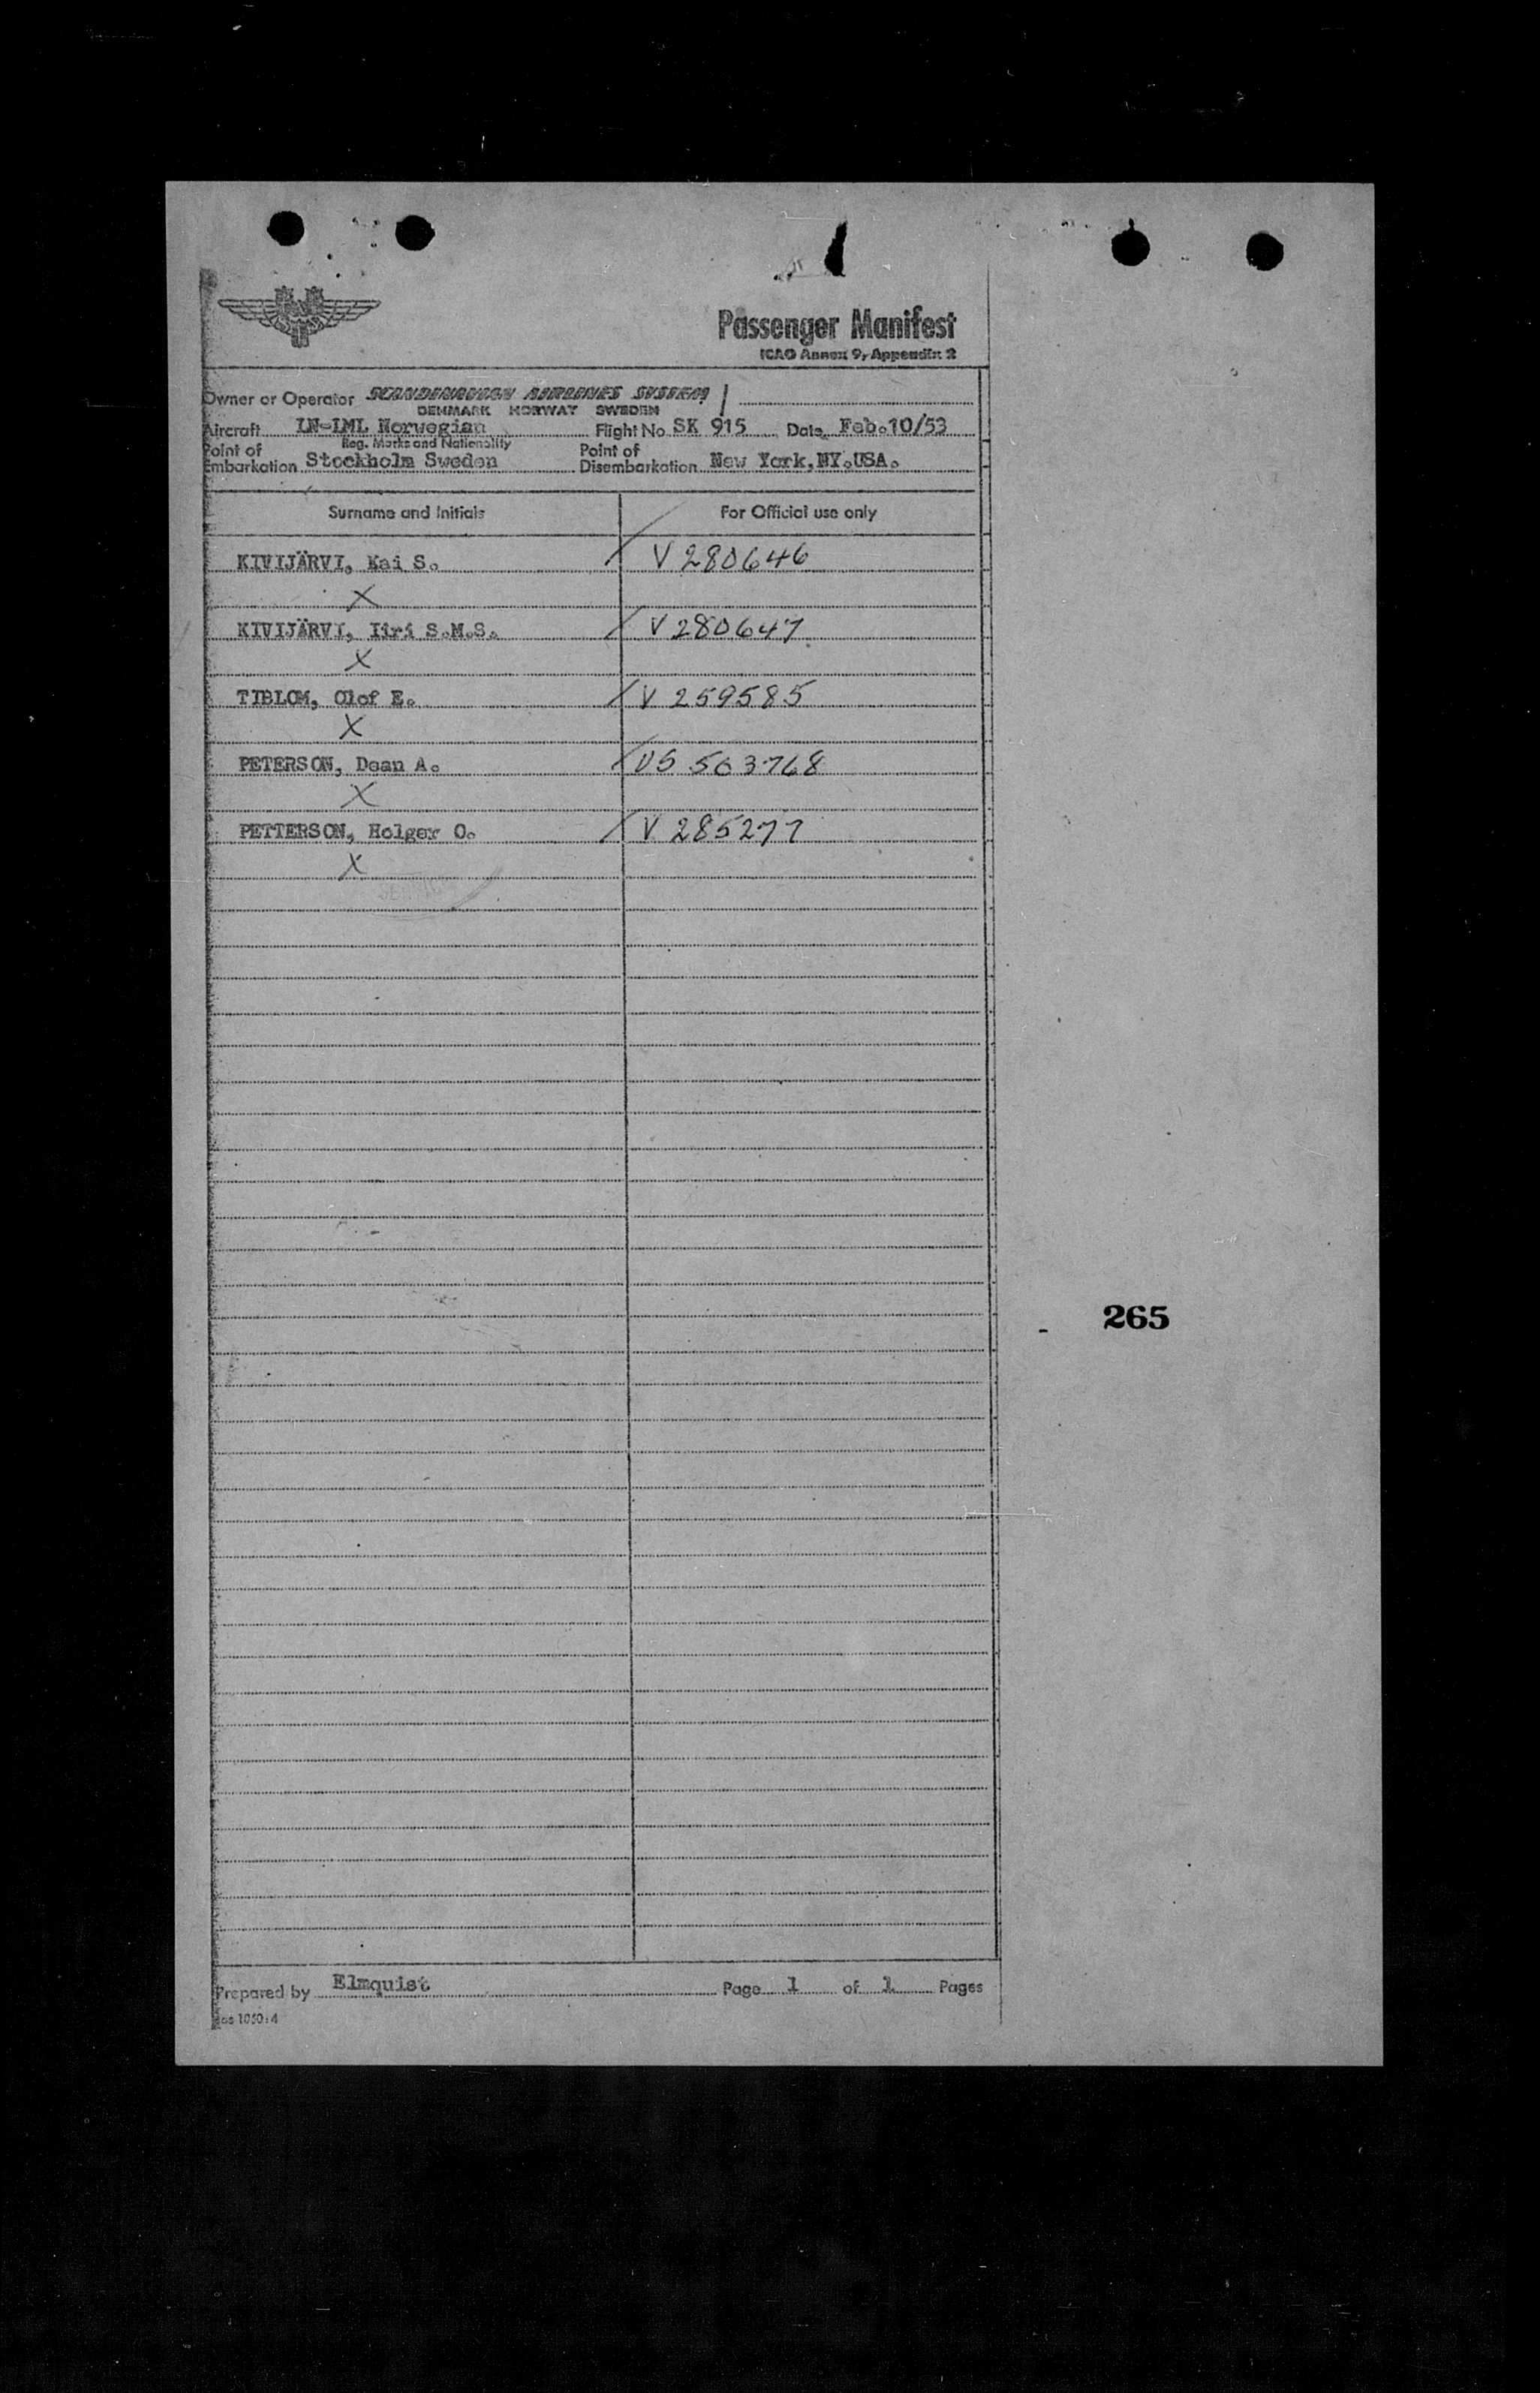 Passenger Manifest
ICAO Annex 9, Appendix 2
Owner or Operator SCANDINAVIAN AIRLINES SYSTEM /
DENMARK NORWAY SWEDEN
Aircraft LN-LML Norwegian Flight No. SK 915 Date Feb.10/53
Reg. Marks and Nationality
Point of Embarkation Stockholm Sweden Point of Disembarkation New York,NY.USA.
Surname and Initials For Official use only
KIVIJÄRVI, Kai S. / V 280646
X
KIVIJÄRVI, Iiri S.M.S. / V 280647
X
TIBLOM, Olof E. / V 259585
X
PETERSON, Dean A. / US 563768
X
PETTERSON, Holger O. / V 285277
X
265
Prepared by Elmquist Page 1 of 1 Pages
1050:4